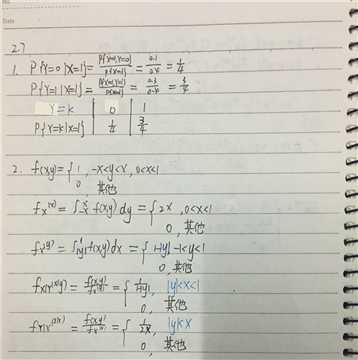 Date
2.7
1. P{Y=0|X=1}= P{X=1,Y=0}/P{X=1} = 0.1/0.4 = 1/4
P{Y=1|X=1}= P{X=1,Y=1}/P{X=1} = 0.3/0.4 = 3/4
Y=k | 0 | 1
P{Y=k|X=1} | 1/4 | 3/4
2. f(x,y)={ 1, -x<y<x, 0<x<1
0, 其他
fx(x) = ∫ˣ₋ₓ f(x,y) dy = { 2x, 0<x<1
0, 其他
= ∫¹|y| f(x,y)dx = { 1-|y|, -1<y<1
0, 其他
fx|Y(x|y) = = { 1/(1-|y|), |y|<x<1
0, 其他
fY|X = = { 1/2x, |y|<x
0, 其他